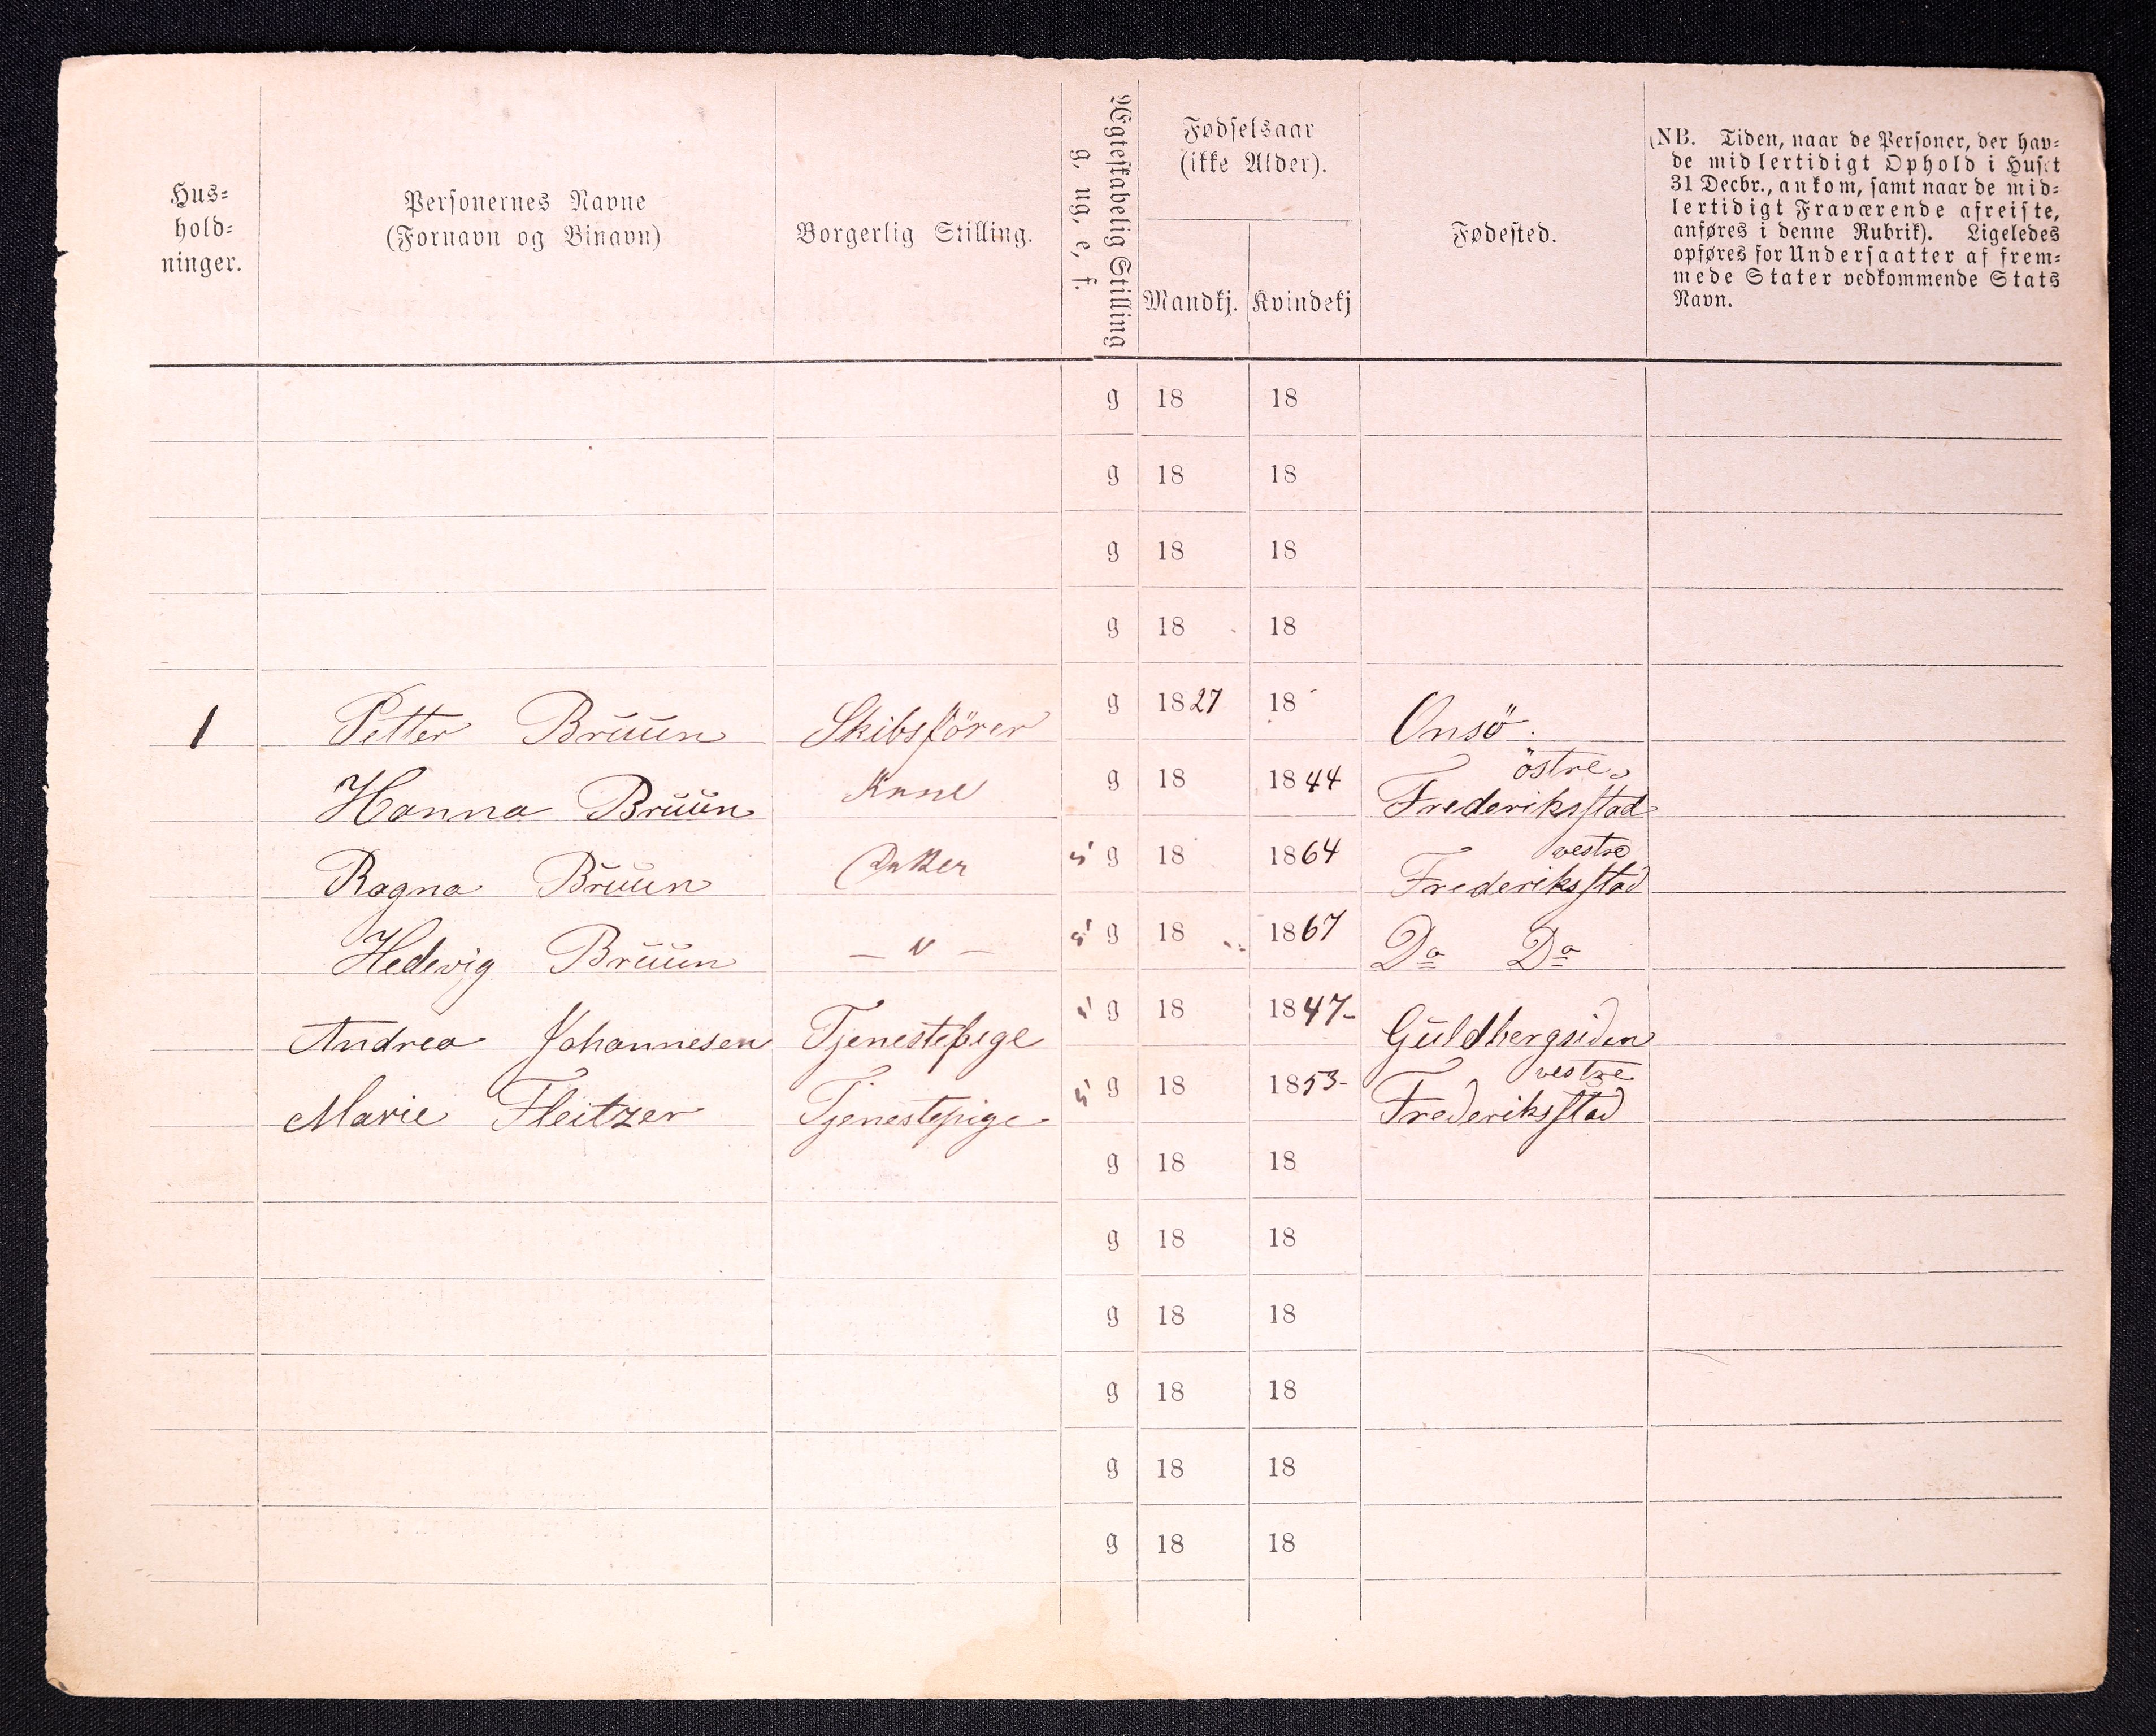 Hus=
hold=
ninger.
Personernes Navne
(Fornavn og Binavn)
Borgerlig Stilling.
Ægteskabelig Stilling
g, ug, e, f.
Fødselsaar
(ikke Alder).
Mandkj. Kvindekj
Fødested.
(NB. Tiden, naar de Personer, der hav=
de midlertidigt Ophold i Huset
31 Decbr., ankom, samt naar de mid=
lertidigt Fraværende afreiste,
anføres i denne Rubrik). Ligeledes
opføres for Undersaatter af frem=
mede Stater vedkommende Stats
Navn.
g 18 18
g 18 18
g 18 18
g 18 18
1 Petter Bruun Skibsförer g 1827 18 Onsö.
östre
Hanna Bruun Kone g 18 1844 Frederiksstad
vestre
Ragna Bruun Datter u g 18 1864 Frederiksstad
Hedevig Bruun — " — u g 18 1867 Do Do
Andrea Johannesen Tjenestepige u g 18 1847- Guldbergsiden
vestre
Marie Fleitzer Tjenestepige u g 18 1853- Frederiksstad
g 18 18
g 18 18
g 18 18
g 18 18
g 18 18
g 18 18